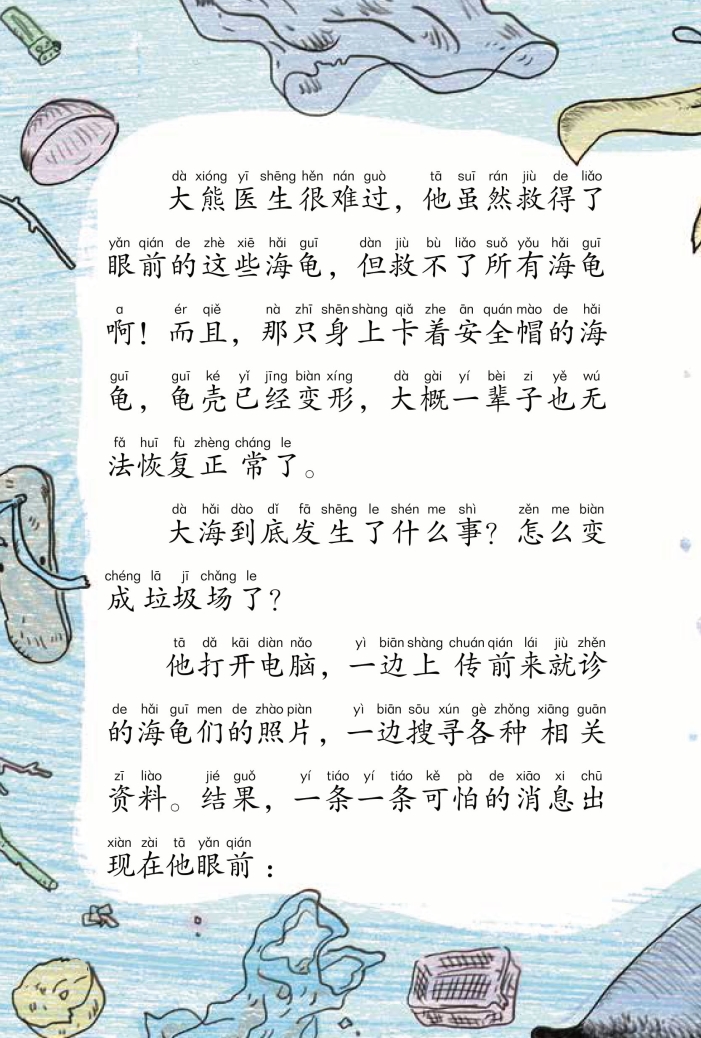 dà xióng yī shēng hěn nán guò tā suī rán jiù de liǎo
大熊医生很难过，他虽然救得了
yǎn qián de zhè xiē hǎi guī dàn jiù bù liǎo suǒ yǒu hǎi guī
眼前的这些海龟，但救不了所有海龟
a ér qiě nà zhī shēn shàng qiǎ zhe ān quán mào de hǎi
啊！而且，那只身上卡着安全帽的海
guī guī ké yǐ jīng biàn xíng dà gài yí bèi zi yě wú
龟，龟壳已经变形，大概一辈子也无
fǎ huī fù zhèng cháng le
法恢复正常了。
dà hǎi dào dǐ fā shēng le shén me shì zěn me biàn
大海到底发生了什么事？怎么变
chéng lā jī chǎng le
成垃圾场了？
tā dǎ kāi diàn nǎo yì biān shàng chuán qián lái jiù zhěn
他打开电脑，一边上传前来就诊
de hǎi guī men de zhào piàn yì biān sōu xún gè zhǒng xiāng guān
的海龟们的照片，一边搜寻各种相关
zī liào jié guǒ yí tiáo yí tiáo kě pà de xiāo xi chū
资料。结果，一条一条可怕的消息出
xiàn zài tā yǎn qián
现在他眼前：